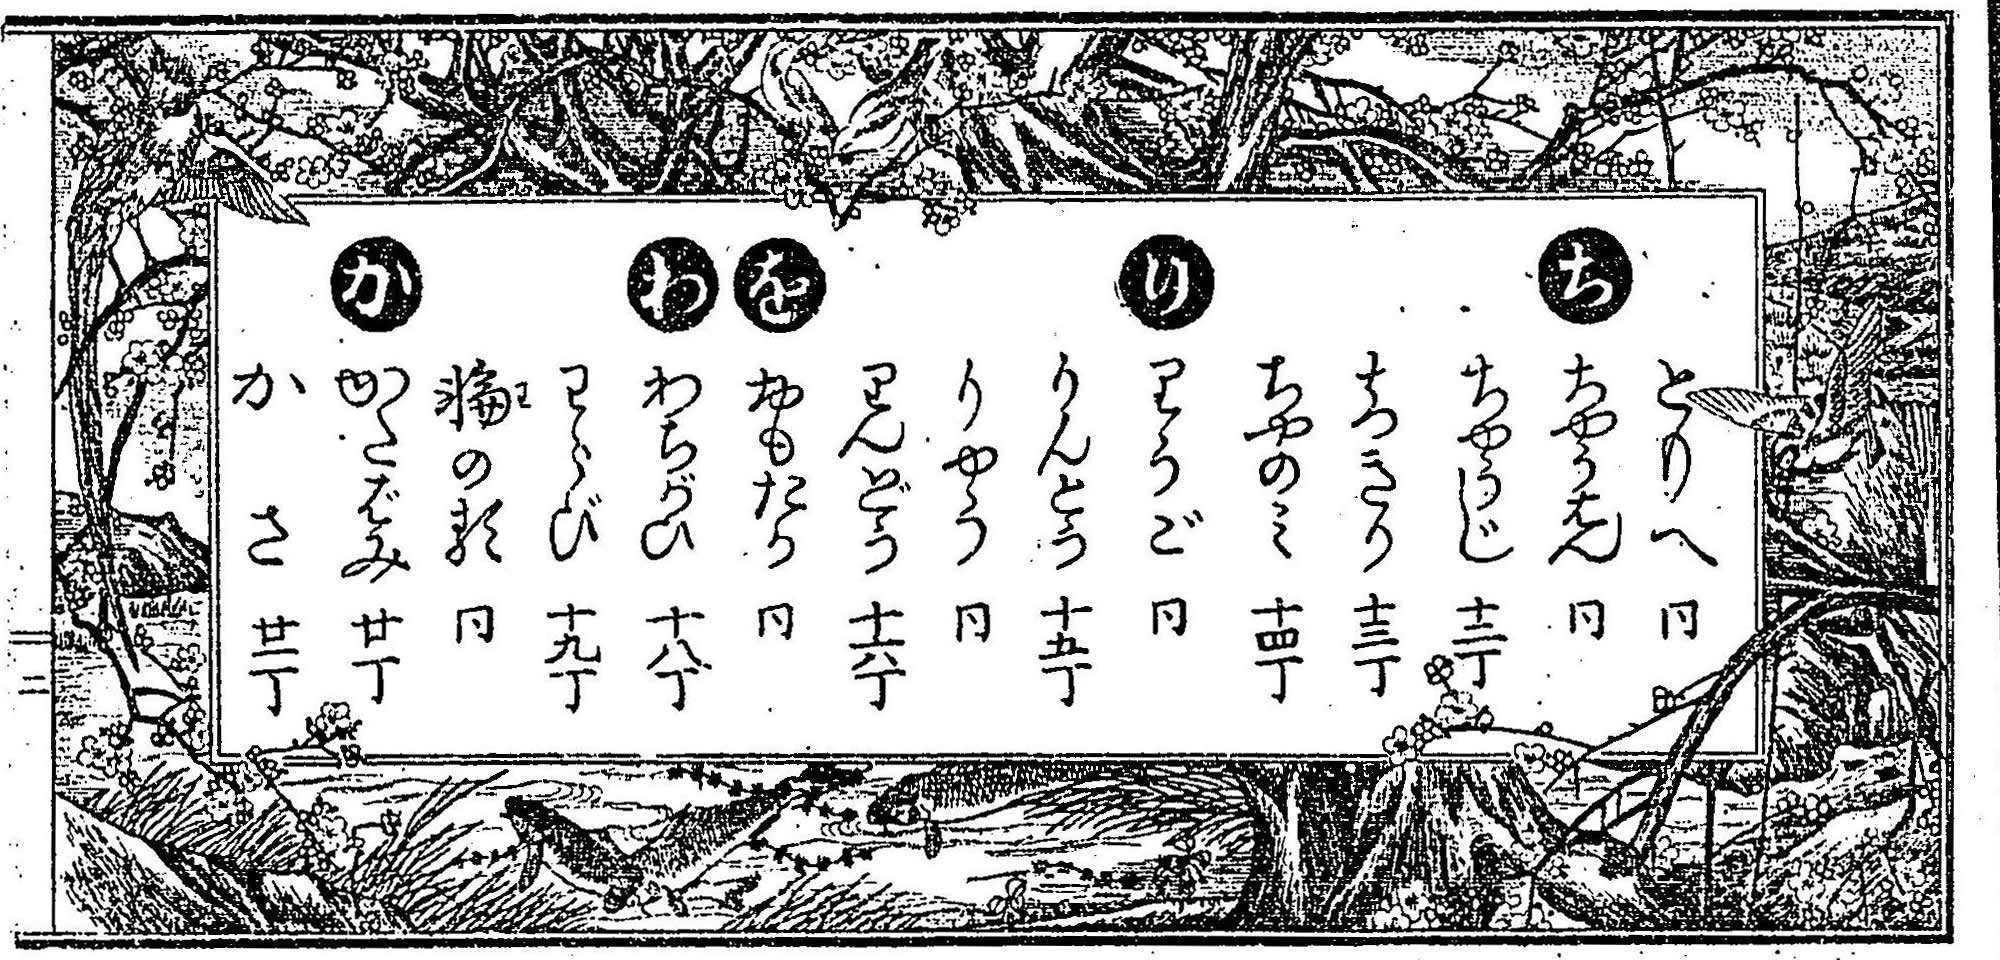 とりへ 同
ち ちやう 同
ちやうじ 十二丁
ちつきり 十三丁
ちやのミ 十四丁
り りうご 同
りんとう 十五丁
りやう 同
りんどう 十六丁
を おもたか 同
わ わちがひ 十八丁
わらび 十九丁
輪ワの類 同
か かたばみ 廿丁
かさ 廿一丁